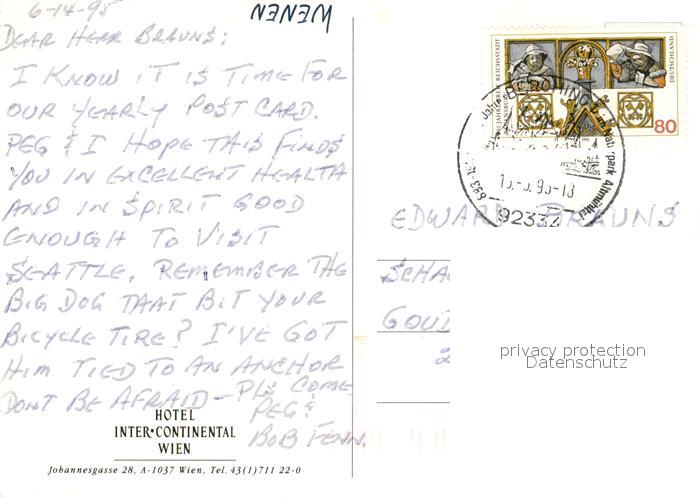 6-14-95
WENEN
DEAR HERR BRAUNS:
I KNOW IT IS TIME FOR
OUR YEARLY POST CARD.
PEG & I HOPE THIS FINDS
YOU IN EXCELLENT HEALTH
AND IN SPIRIT GOOD
ENOUGH TO VISIT
SEATTLE. REMEMBER THE
BIG DOG THAT BIT YOUR
BICYCLE TIRE? I'VE GOT
HIM TIED TO AN ANCHOR
DONT BE AFRAID - PLS COME
PEG &
BOB FENN.
HOTEL
INTER•CONTINENTAL
WIEN
Johannesgasse 28, A-1037 Wien, Tel. 43(1)711 22-0
REICHSSTADT
DEUTSCHLAND
80
Jahre
Naturpark Altmühltal
92334
EDWARD BRAUNS
SCHA
GOU
2
privacy protection
Datenschutz